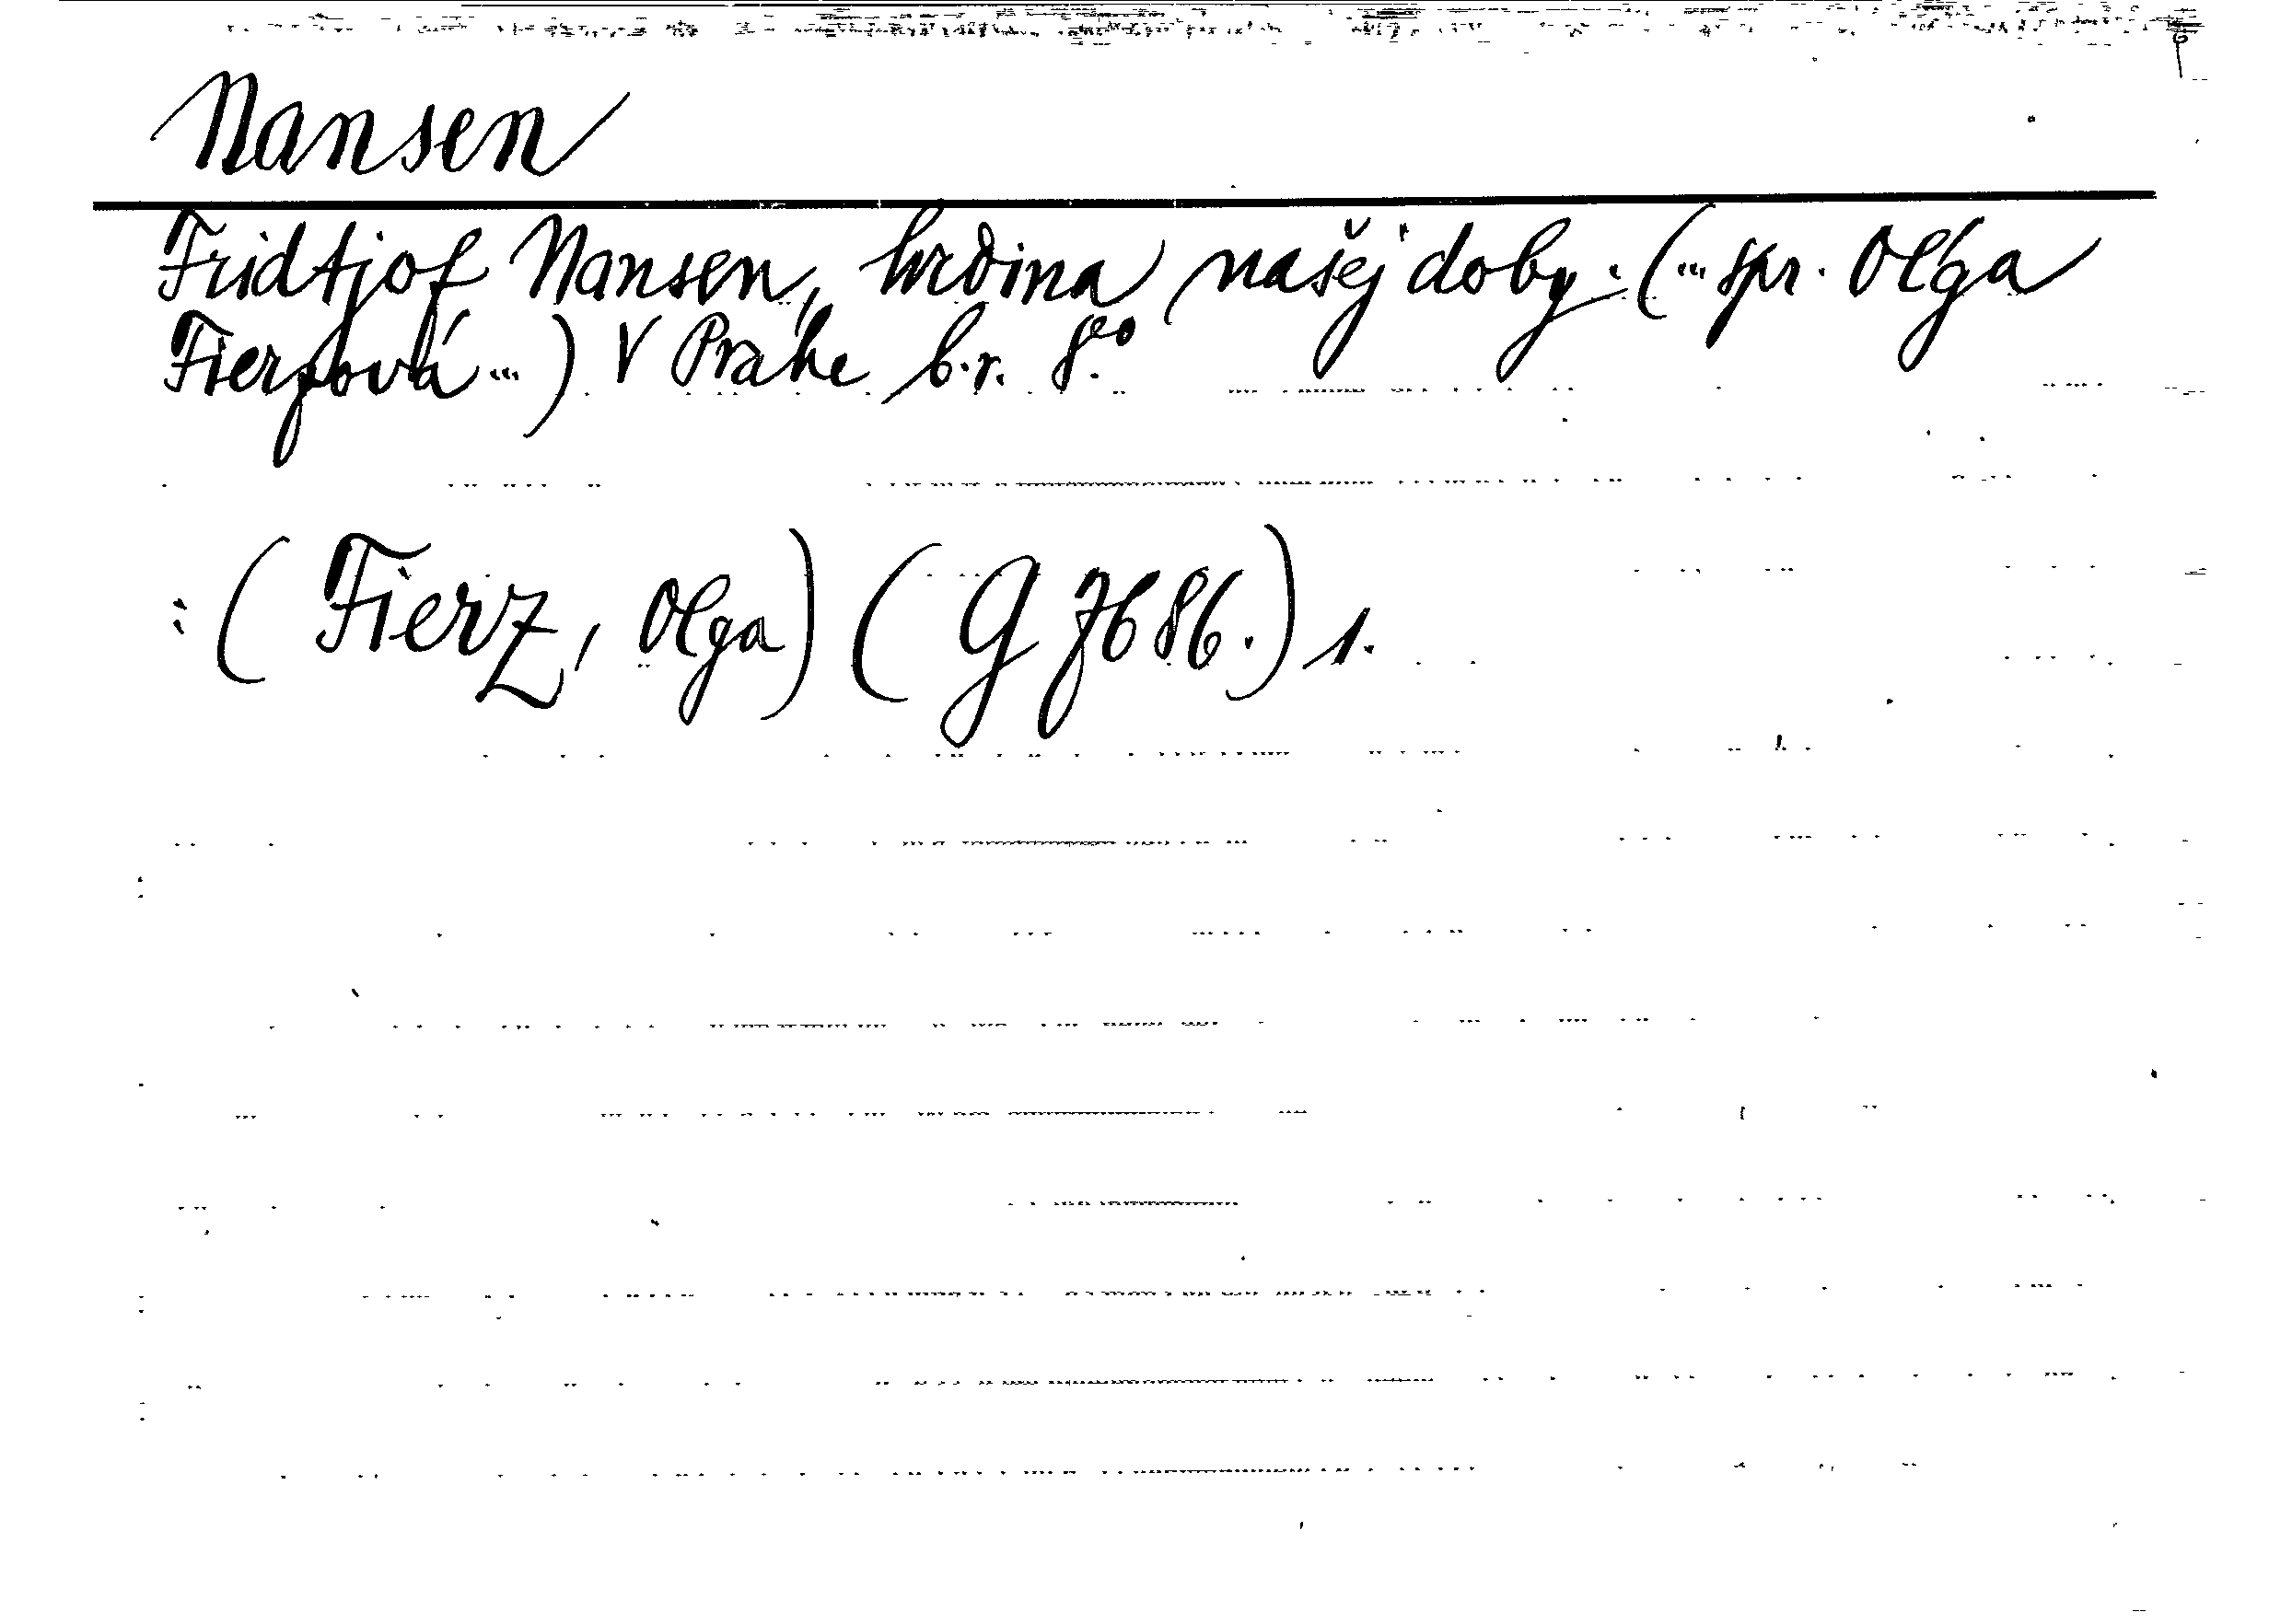 Nansen
Fridtjof Nansen, hrdina našej doby. (... spr. Olga
Fierzová ...) V Prahe b.r. 8.°
: (Fierz, Olga) (G 7686.) 1.